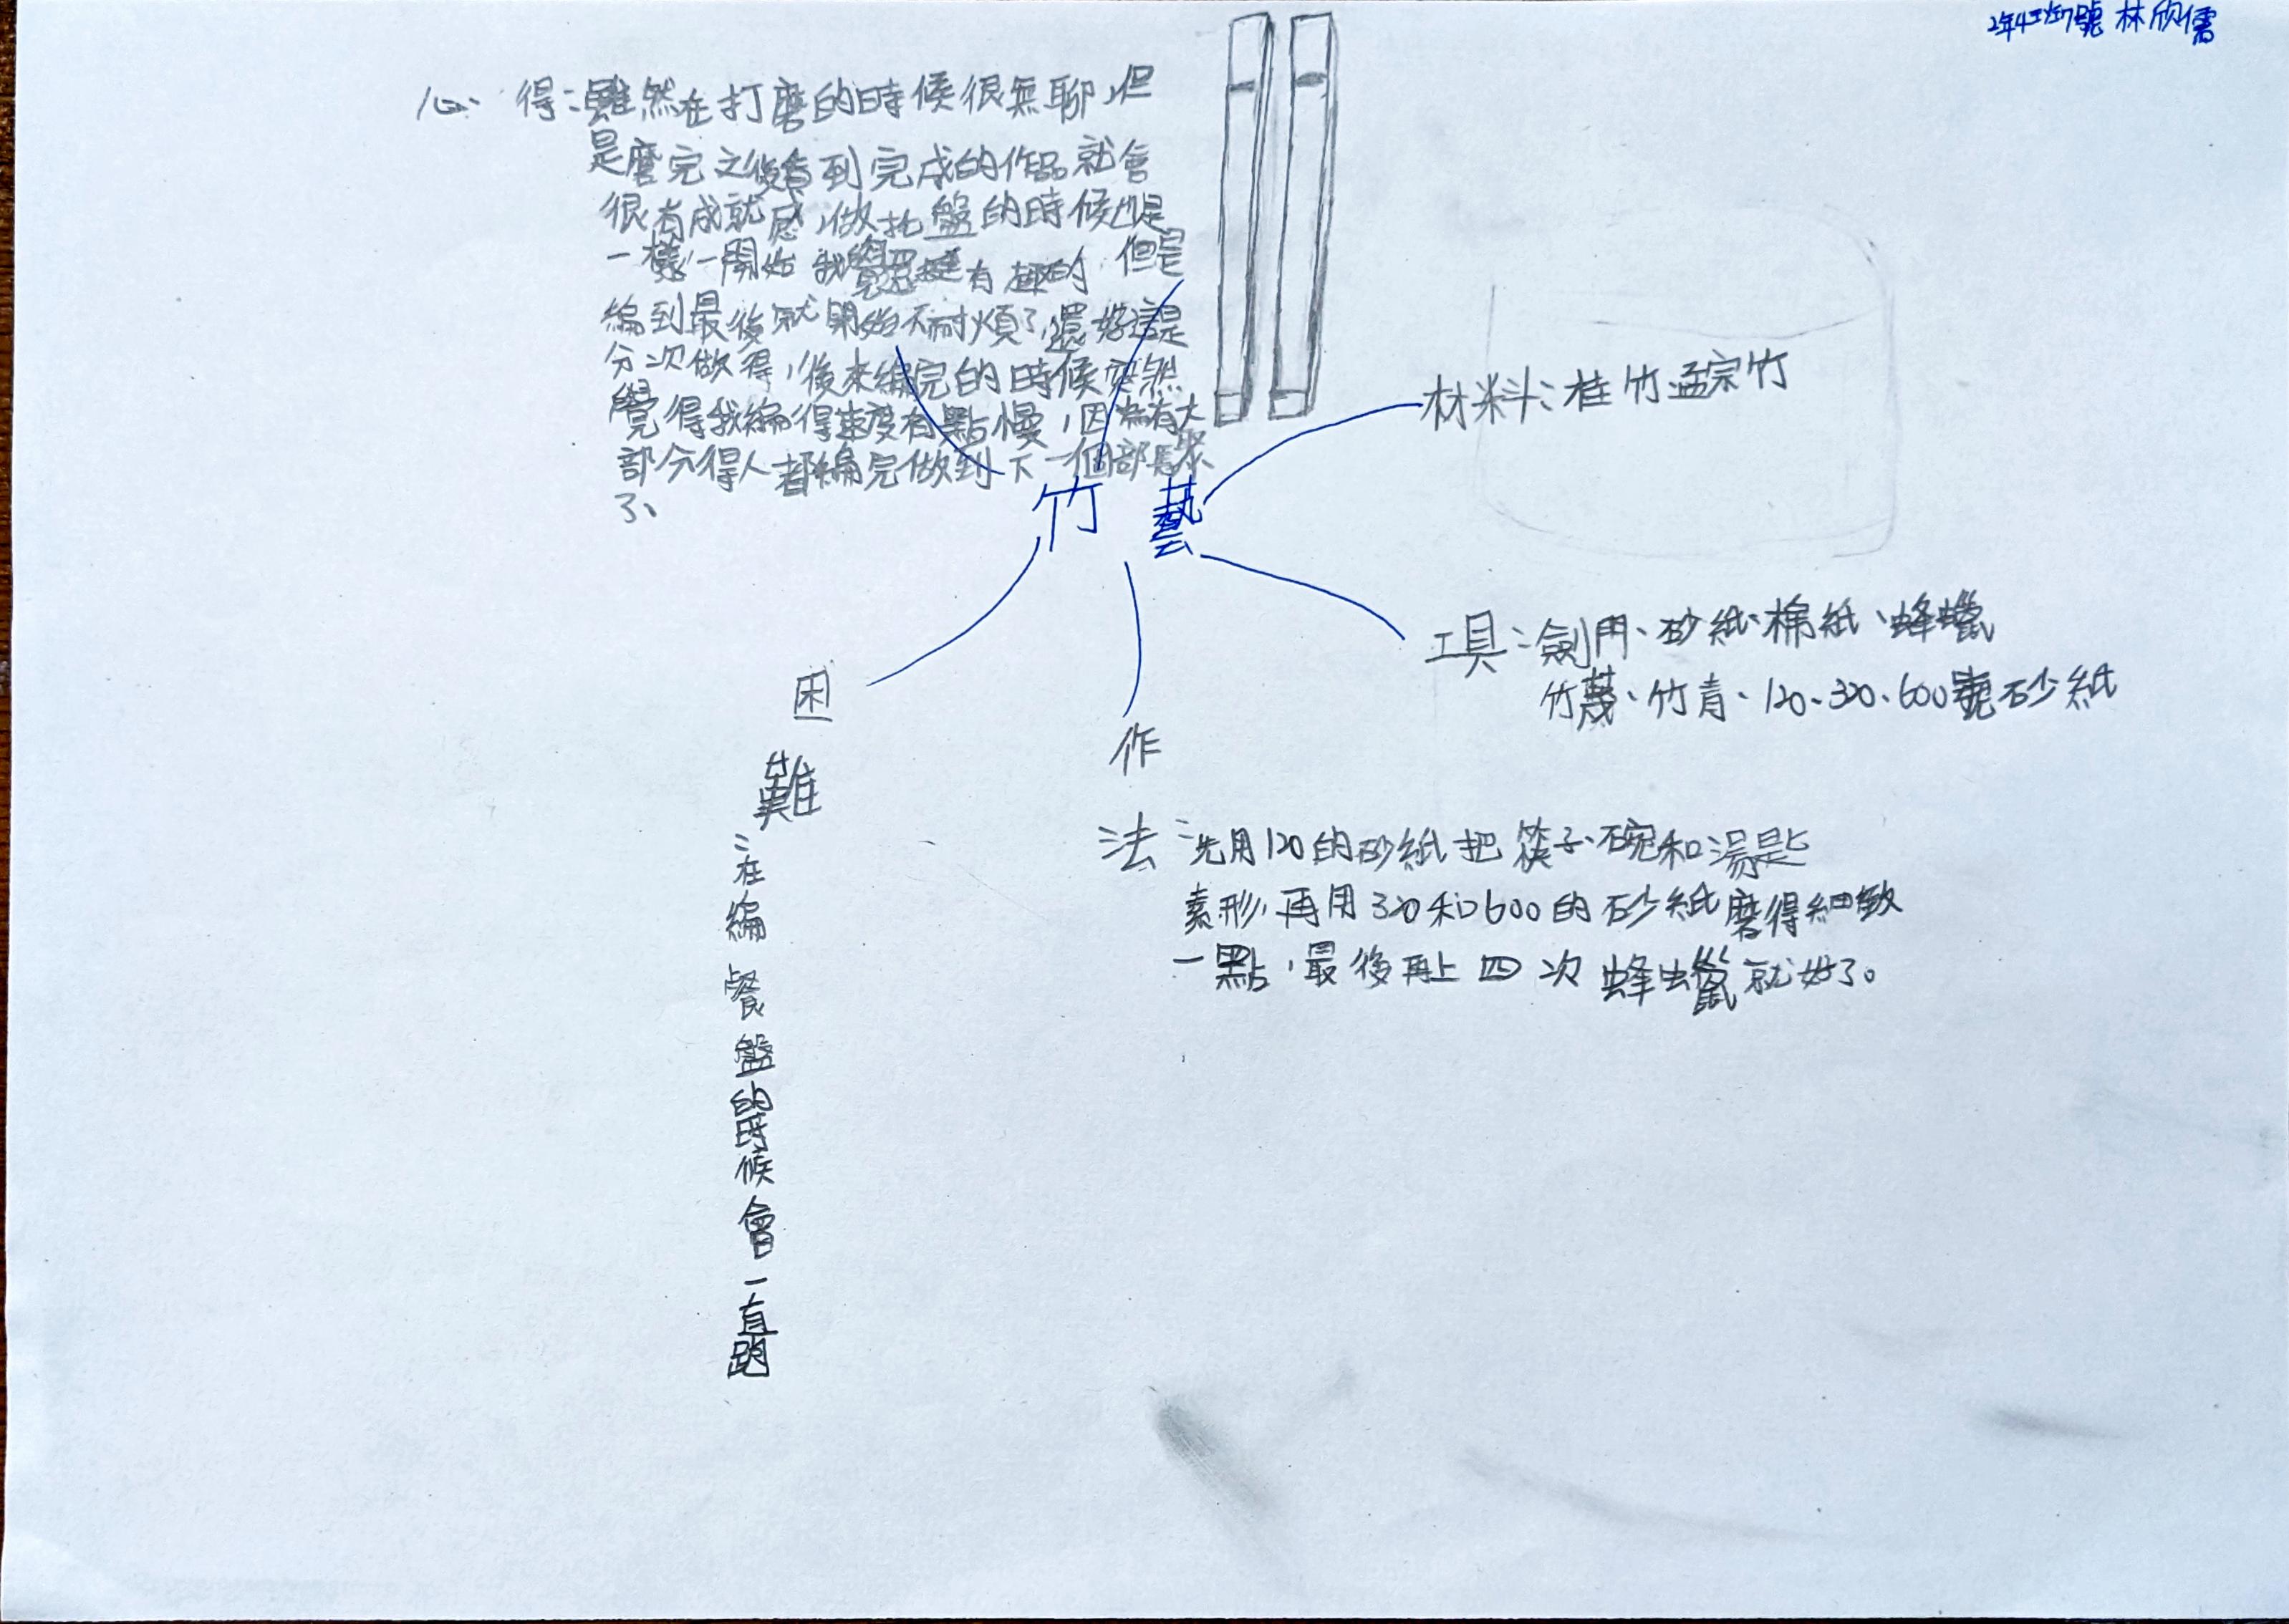 2年4班7號 林欣儒
心得:雖然在打磨的時候很無聊,但
是磨完之後看到完成的作品就會
很有成就感,做托盤的時候也是
一樣,一開始我覺得還挺有趣的 但是
編到最後就開始不耐煩了,還好這是
分次做得,後來編完的時候突然
覺得我編得速度有點慢,因為有大
部分得人都編完做到下一個部驟
了、
竹藝
材料:桂竹、孟宗竹
工具:劍門、砂紙、棉紙、蜂蠟
竹篾、竹青、120、320、600號砂紙
作法:先用120的砂紙把筷子、碗和湯匙
素形,再用320和600的砂紙磨得細緻
一點,最後再上四次蜂蠟就好了。
困難:在編餐盤的時候會一直跑